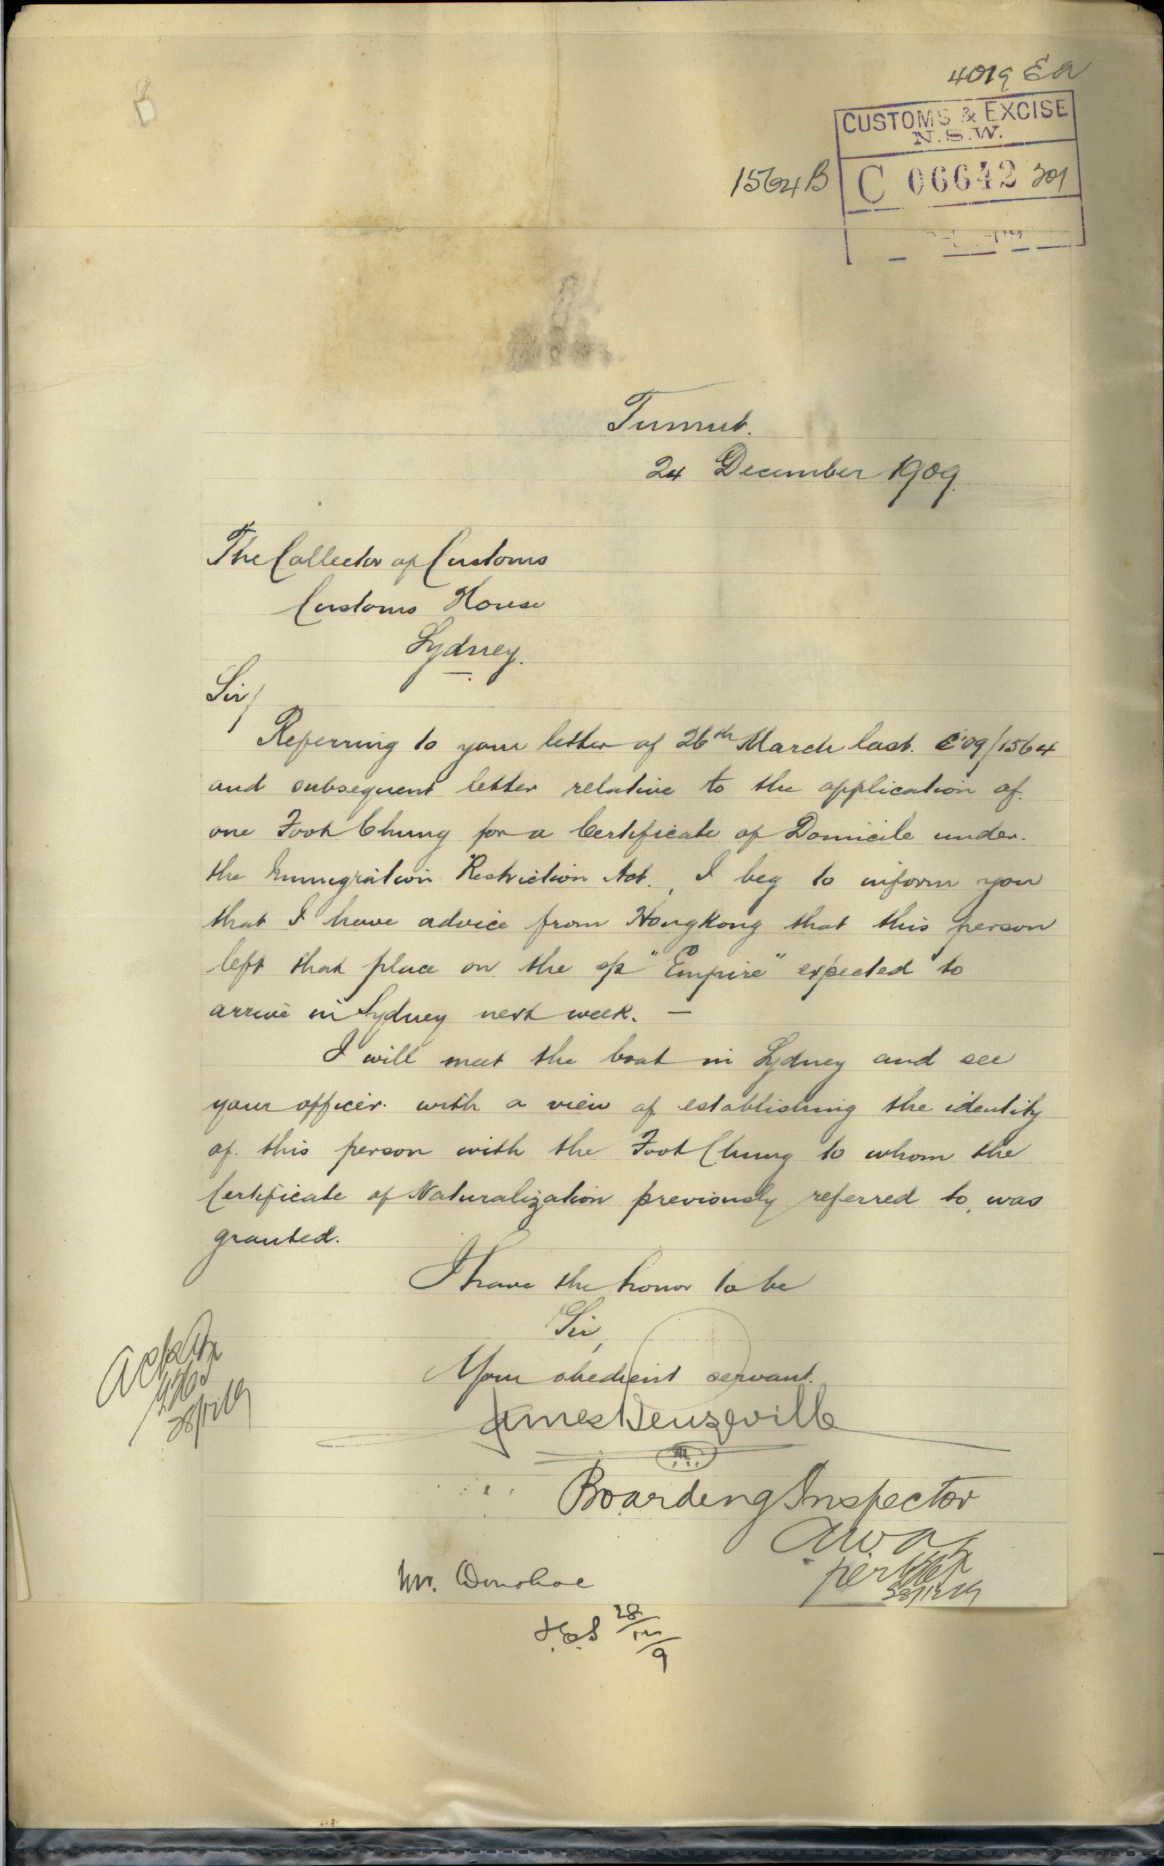 4019 Ea
CUSTOMS & EXCISE
N.S.W.
1564 B
C 06642
Tumut.
24 December 1909.
The Collector of Customs
Customs House
Sydney.
Sir/
Referring to your letter of 26th March last. C'09/1564
and subsequent letter relative to the application of
one Foot Chung for a Certificate of Domicile under.
the Immigration Restriction Act., I beg to inform you
that I have advice from Hongkong that this person
left that place on the sp "Empire" expected to
arrive in Sydney next week. —
I will meet the boat in Sydney and see
your officer. with a view of establishing the identity
of this person with the Foot Chung to whom the
Certificate of Naturalization previously referred to, was
granted.
I have the honor to be
Sir,
Your obedient servant.
James Deuzeville
Boarding Inspector
28/12/09
per
28/12/09
Mr. Donohoe
28/12/9